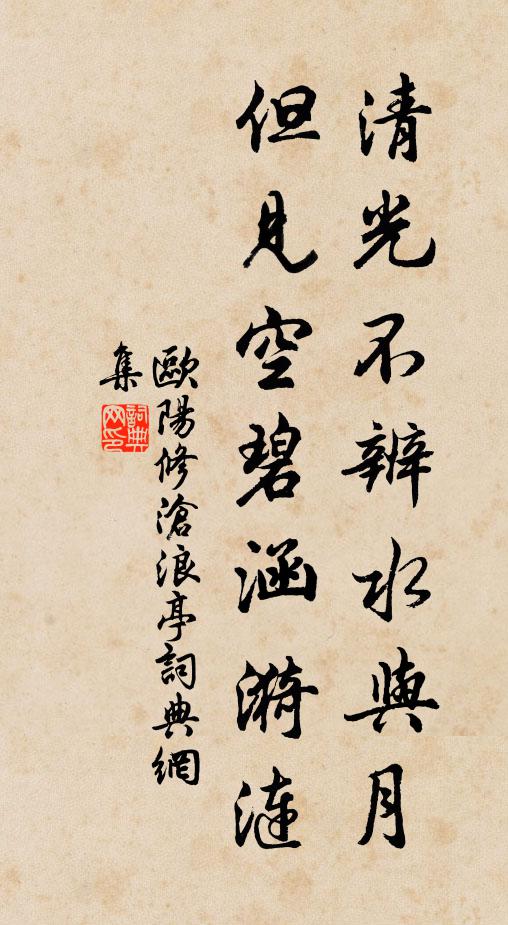 清光不辨水與月
但見空碧涵漪漣
歐陽修滄浪亭詞典網
集
詞典
网印